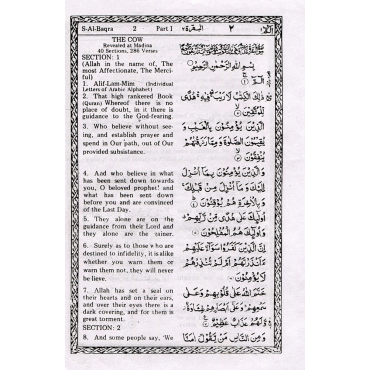 S-Al-Baqra 2 Part 1 البقرة ٢ ٢ الم
THE COW
Revealed at Madina
40 Sections, 286 Verses
SECTION: 1
(Allah in the name of, The
most Affectionate, The Merci-
ful)
1. Alif-Lam-Mim (Individual
Letters of Arabic Alphabet)
2. That high rankered Book
(Quran) Whereof there is no
place of doubt, in it there is
guidance to the God-fearing.
3. Who believe without see-
ing, and establish prayer and
spend in Our path, out of Our
provided subsistance.
4. And who believe in what
has been sent down towards
you, O beloved prophet! and
what has been sent down
before you and are convinced
of the Last Day.
5. They alone are on the
guidance from their Lord and
they alone are the gainer.
6. Surely as to those who are
destined to infidelity, it is alike
whether you warn them or
warn them not, they will never
be lieve.
7. Allah has set a seal on
their hearts and on their ears,
and over their eyes there is a
dark covering, and for them is
great torment.
SECTION: 2
8. And some people say, 'We
بِسْمِ اللهِ الرَّحْمٰنِ الرَّحِيْمِ
الٓمّٓ
ذٰلِكَ الْكِتٰبُ لَا رَيْبَ فِيْهِ هُدًى
لِّلْمُتَّقِيْنَ
الَّذِيْنَ يُؤْمِنُوْنَ بِالْغَيْبِ وَ
يُقِيْمُوْنَ الصَّلٰوةَ وَمِمَّا رَزَقْنٰهُمْ
يُنْفِقُوْنَ
وَالَّذِيْنَ يُؤْمِنُوْنَ بِمَآ اُنْزِلَ
اِلَيْكَ وَمَآ اُنْزِلَ مِنْ قَبْلِكَ
وَبِالْاٰخِرَةِ هُمْ يُوْقِنُوْنَ
اُولٰٓئِكَ عَلٰى هُدًى مِّنْ رَّبِّهِمْ
وَاُولٰٓئِكَ هُمُ الْمُفْلِحُوْنَ
اِنَّ الَّذِيْنَ كَفَرُوْا سَوَآءٌ عَلَيْهِمْ
ءَاَنْذَرْتَهُمْ اَمْ لَمْ تُنْذِرْهُمْ
لَا يُؤْمِنُوْنَ
خَتَمَ اللهُ عَلٰى قُلُوْبِهِمْ وَعَلٰى
سَمْعِهِمْ وَعَلٰٓى اَبْصَارِهِمْ غِشَاوَةٌ
وَّلَهُمْ عَذَابٌ عَظِيْمٌ
وَمِنَ النَّاسِ مَنْ يَّقُوْلُ اٰمَنَّا